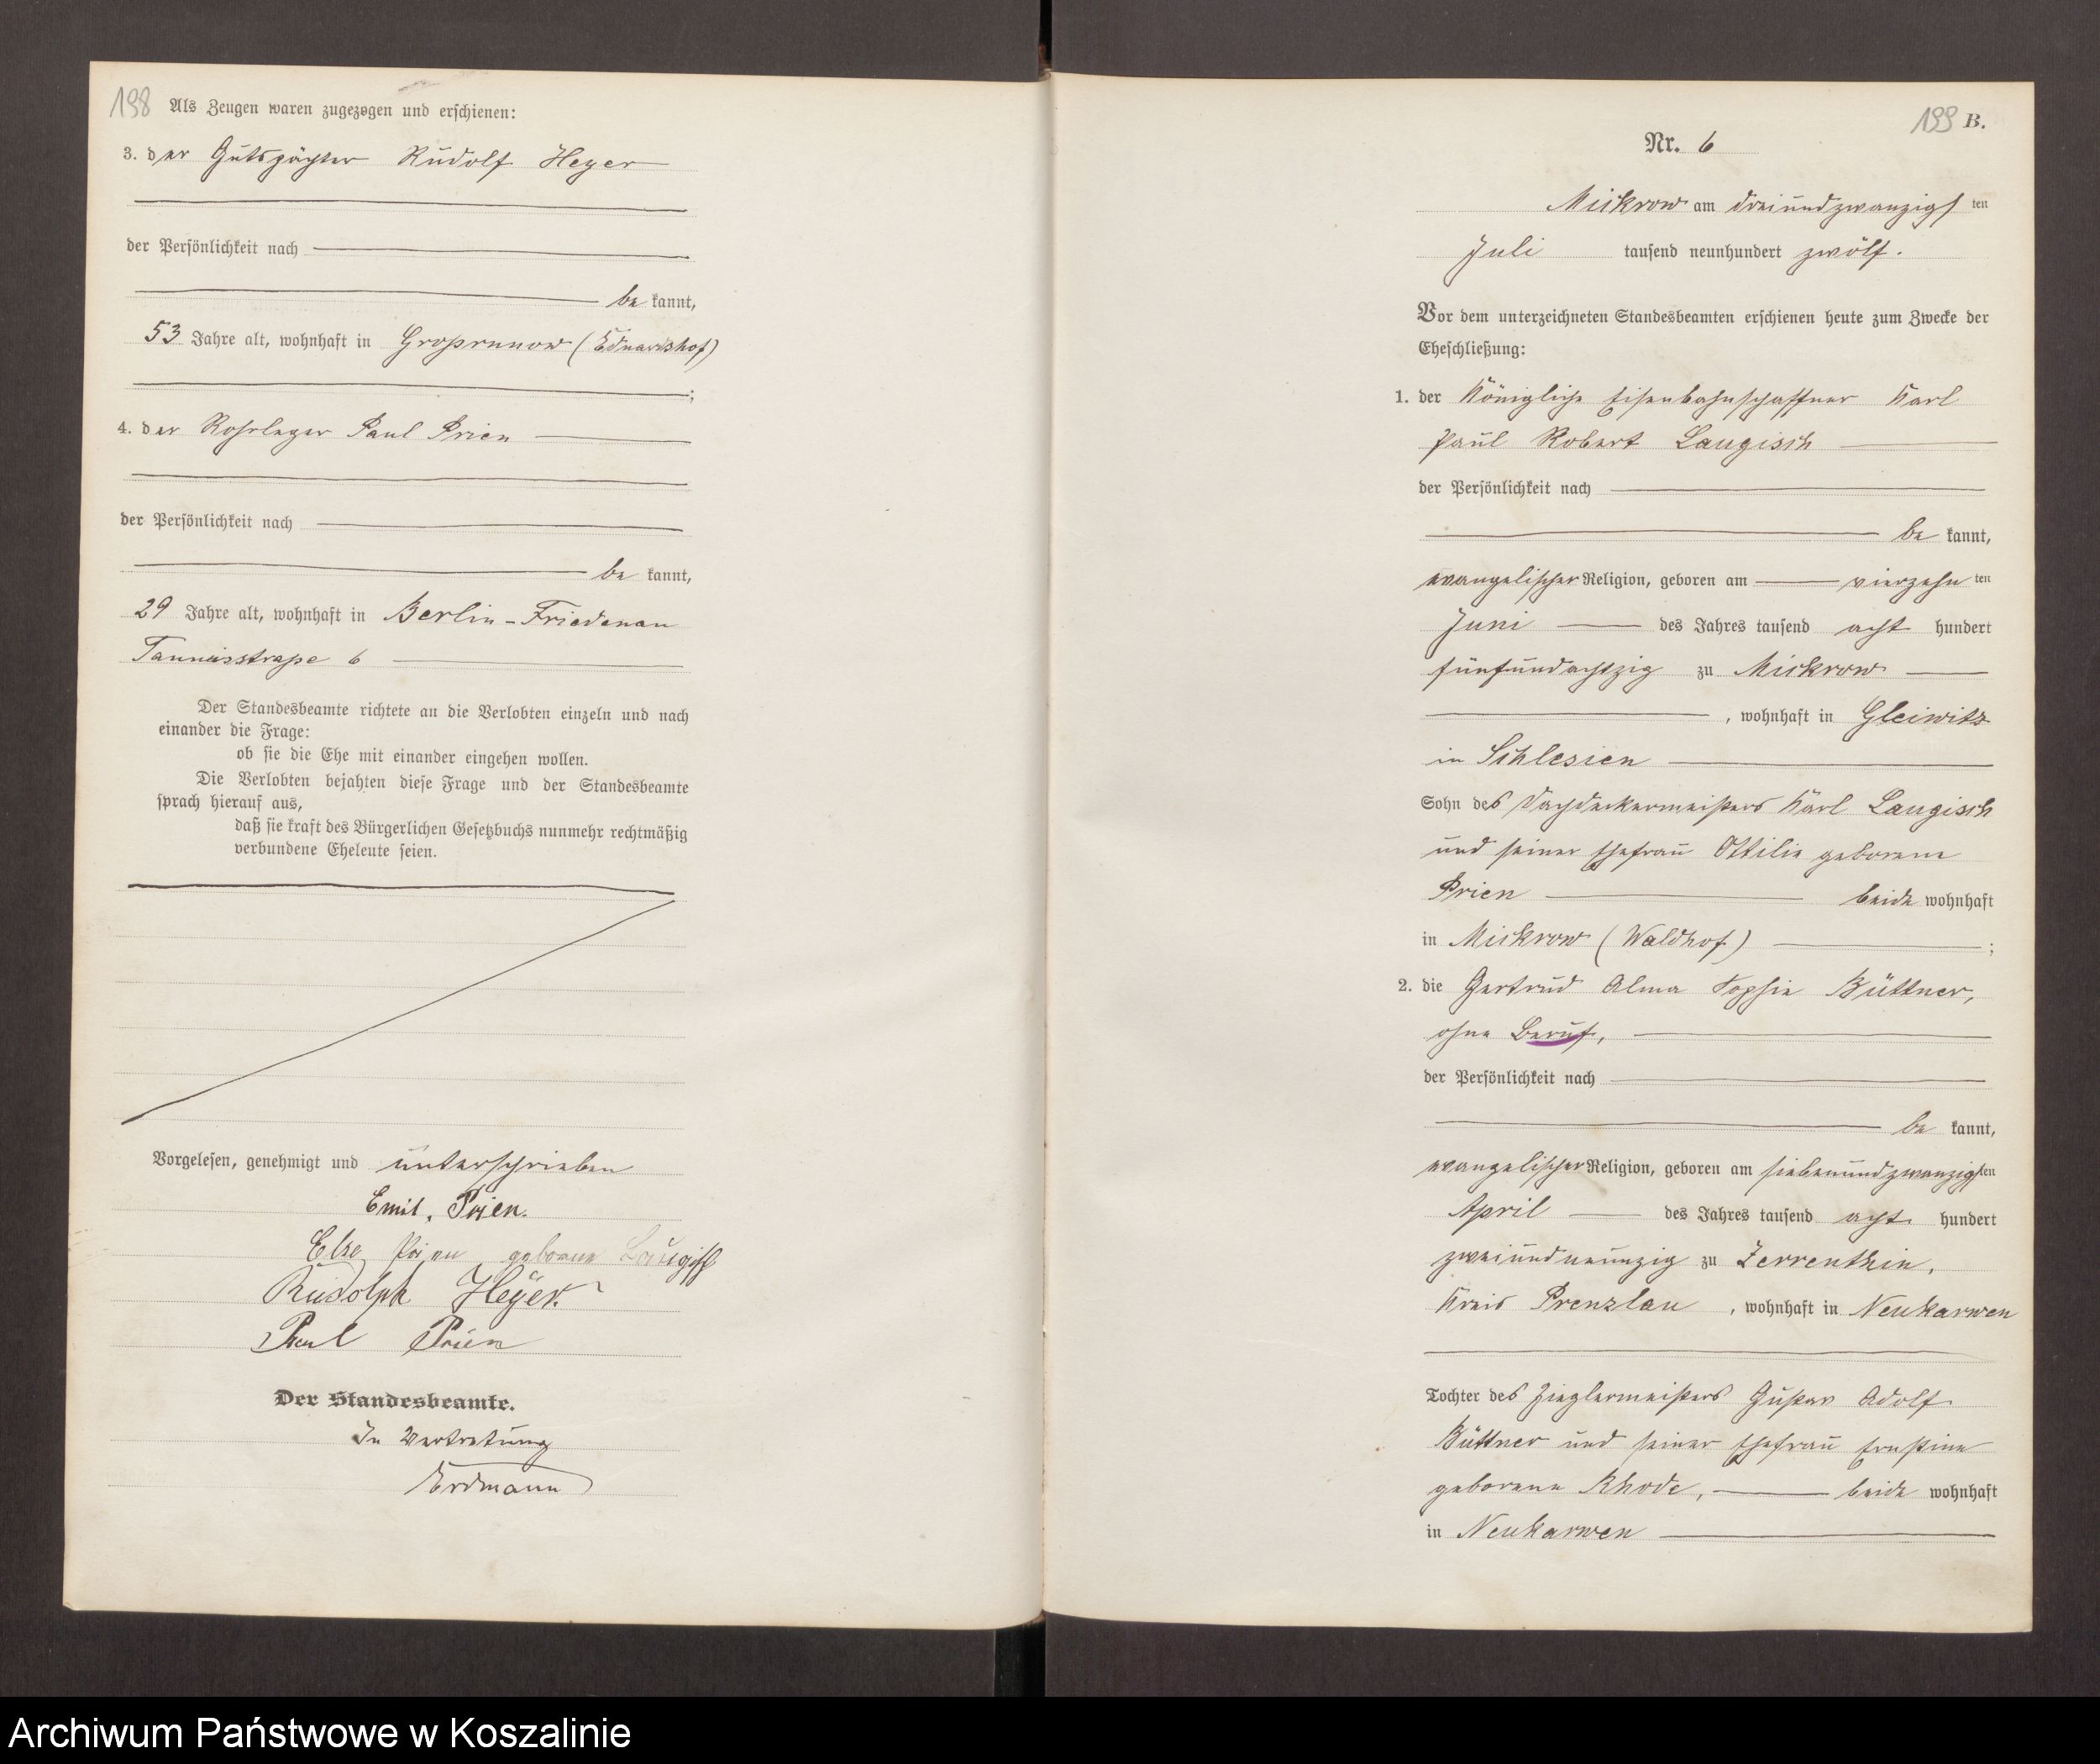 198 Als Zeugen waren zugezogen und erschienen:
3. der Gutspächter Rudolf Heyer
der Persönlichkeit nach
be kannt,
53 Jahre alt, wohnhaft in Großrunow (Eduardshof)
;
4. der Rohrleger Paul Prien
der Persönlichkeit nach
be kannt,
29 Jahre alt, wohnhaft in Berlin-Friedenau
Taunusstraße 6
Der Standesbeamte richtete an die Verlobten einzeln und nach
einander die Frage:
ob sie die Ehe mit einander eingehen wollen.
Die Verlobten bejahten diese Frage und der Standesbeamte
sprach hierauf aus,
daß sie kraft des Bürgerlichen Gesetzbuchs nunmehr rechtmäßig
verbundene Eheleute seien.
Vorgelesen, genehmigt und unterschrieben
Emil Prien.
Else Prien geborene Laugisch
Rudolph Heyer.
Paul Prien
Der Standesbeamte.
In Vertretung
Erdmann
199 B.
Nr. 6
Mickrow am dreiundzwanzigs ten
Juli tausend neunhundert zwölf.
Vor dem unterzeichneten Standesbeamten erschienen heute zum Zwecke der
Eheschließung:
1. der Königliche Eisenbahnschaffner Karl
Paul Robert Laugisch
der Persönlichkeit nach
be kannt,
evangelischer Religion, geboren am vierzehn ten
Juni des Jahres tausend acht hundert
fünfundachtzig zu Mickrow
, wohnhaft in Gleiwitz
in Schlesien
Sohn des Dachdeckermeisters Karl Laugisch
und seiner Ehefrau Ottilie geborene
Prien beide wohnhaft
in Mickrow (Waldhof) ;
2. die Gertrud Alma Sophie Büttner,
ohne Beruf,
der Persönlichkeit nach
be kannt,
evangelischer Religion, geboren am siebenundzwanzigsten
April des Jahres tausend acht hundert
zweiundneunzig zu Zerrenthin,
Kreis Prenzlau , wohnhaft in Neukarwen
Tochter des Zieglermeisters Gustav Adolf
Büttner und seiner Ehefrau Ernstine
geborene Rhode, beide wohnhaft
in Neukarwen
Archiwum Państwowe w Koszalinie